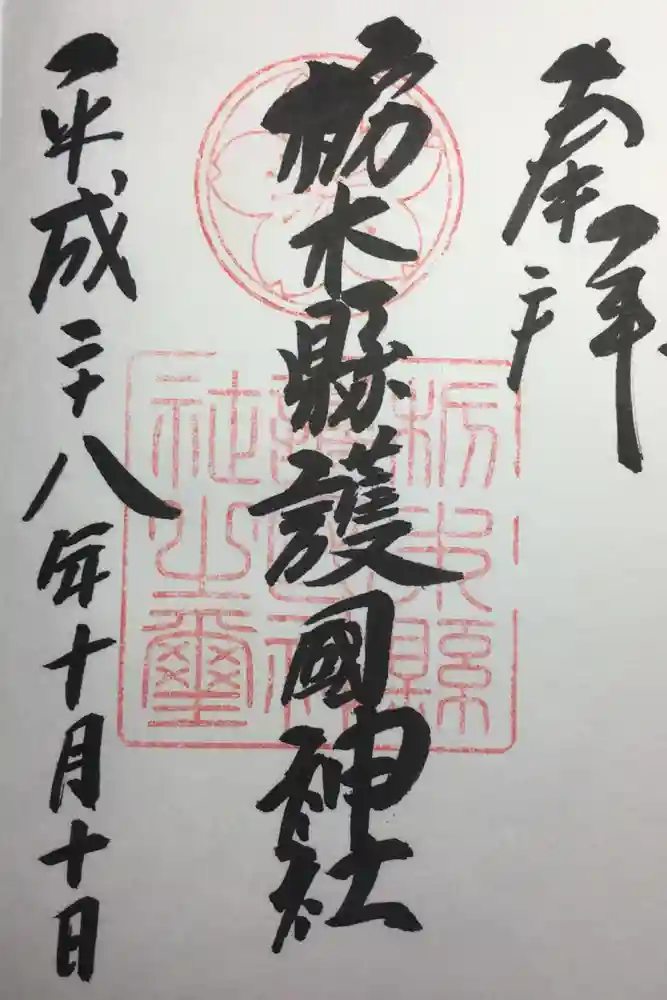 奉拝
栃木縣護國神社
栃木縣
護國神
社之璽
平成二十八年十月十日